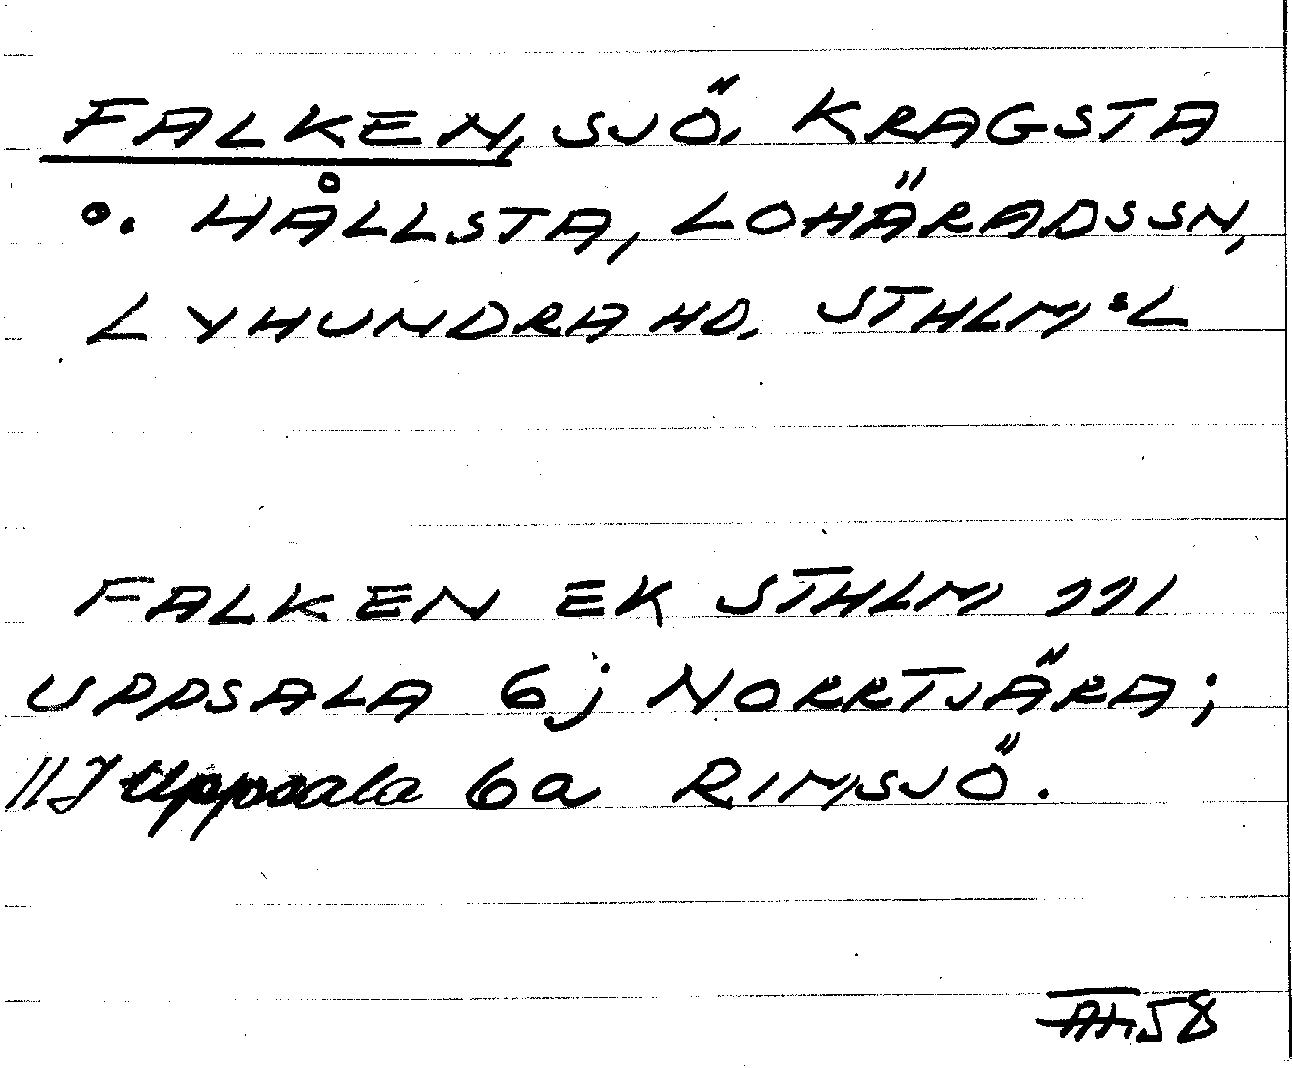 FALKEN, SJÖ, KRAGSTA
o. HÅLLSTA, LOHÄRADSSN,
LYHUNDRA HD. STHLM:L
FALKEN EK STHLM 111
UPPSALA 6j NORRTJÄRA;
11J Uppsala 6a RIMSJÖ.
58